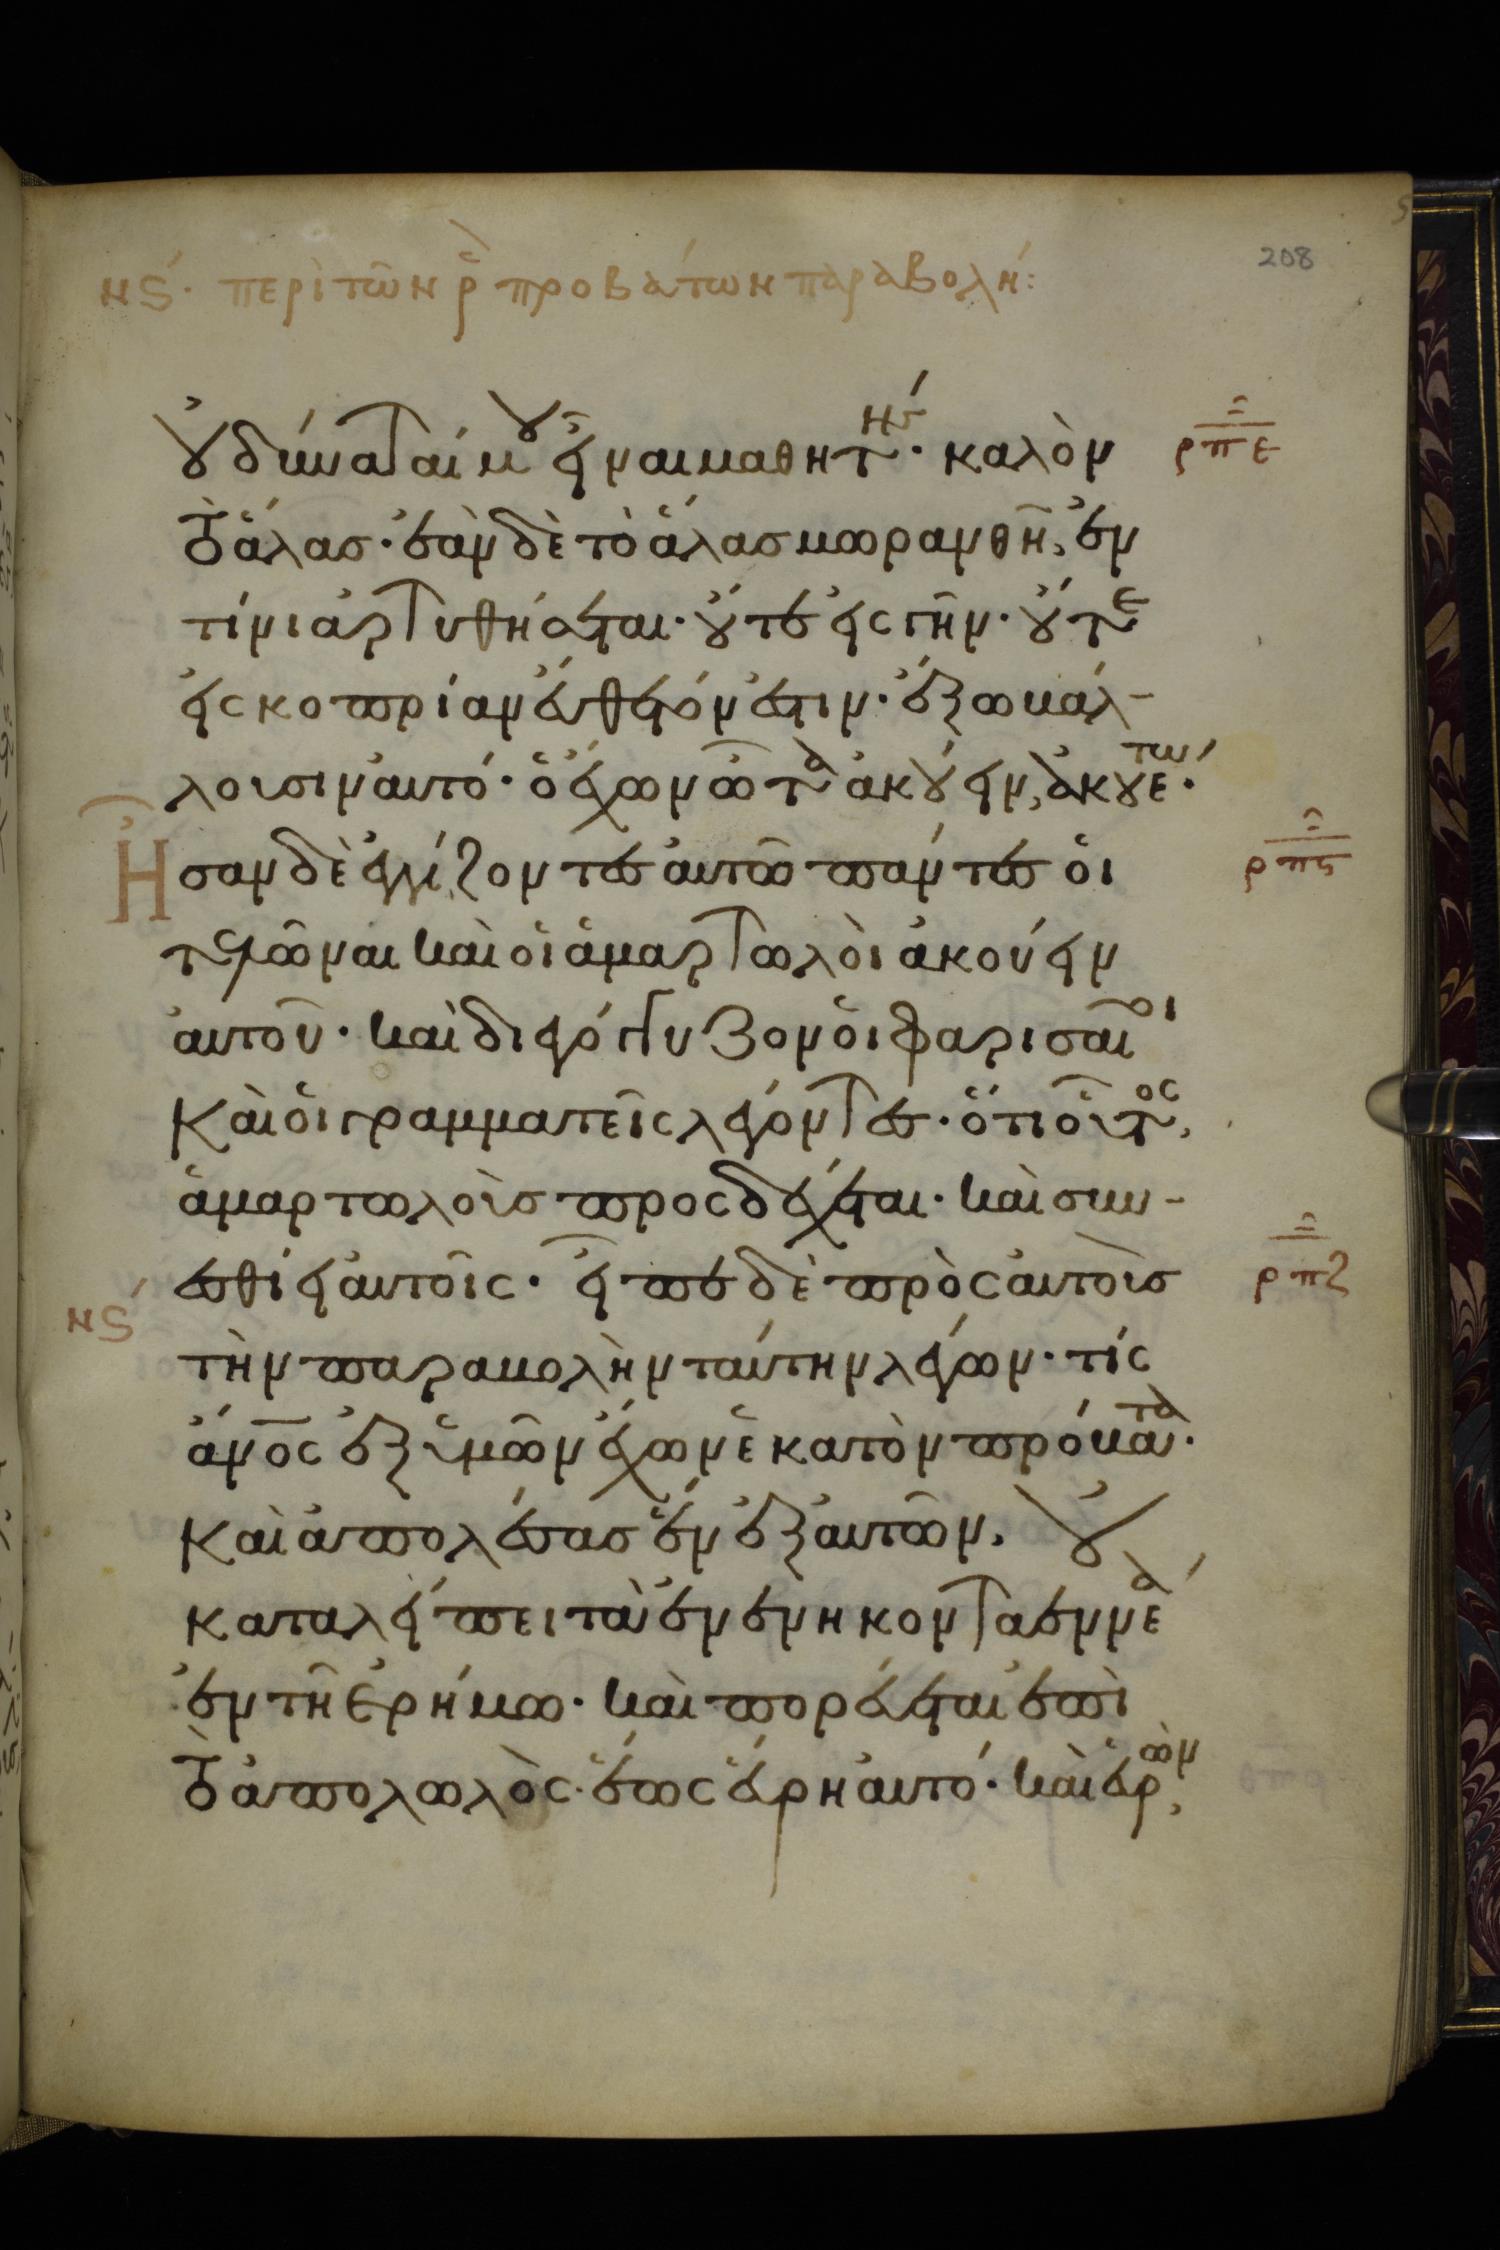 208
νϛ́· περὶ τῶν ρ̀ προβάτων παραβολή:
οὐ δύναταί μου εἶναι μαθητής· καλὸν
ρπε
τὸ ἅλας· ἐὰν δὲ τὸ ἅλας μωρανθῆ, ἐν
τίνι ἀρτυθήσεται· οὔτε εἰς γῆν· οὔτε
εἰς κοπρίαν εὔθετόν ἐστιν· ἔξω βάλ-
λουσιν αὐτό· ὁ ἔχων ὦτα ἀκούειν, ἀκουέτω·
Ἦσαν δὲ ἐγγίζοντες αὐτῶ πάντες οἱ
ρπϛ
τελῶναι καὶ οἱ ἁμαρτωλοὶ ἀκούειν
αὐτοῦ· καὶ διεγόγγυζον οἱ φαρισαῖοι
καὶ οἱ γραμματεῖς λέγοντες· ὅτι οὗτος,
ἁμαρτωλοὺς προσδέχεται· καὶ συν-
εσθίει αὐτοῖς· εἶπε δὲ πρὸς αὐτοὺς
ρπζ
νϛ́
τὴν παραβολὴν ταύτην λέγων· τίς
ἄνος ἐξ ὑμῶν ἔχων ἑκατὸν πρόβατα·
καὶ ἀπολέσας ἓν ἐξ αὐτῶν, οὐ
καταλείπει τὰ ἐνενηκονταεννέα
ἐν τῆ ἐρήμω· καὶ πορεύεται ἐπὶ
τὸ ἀπολωλὸς· ἕως εὕρη αὐτό· καὶ εὑρὼν,